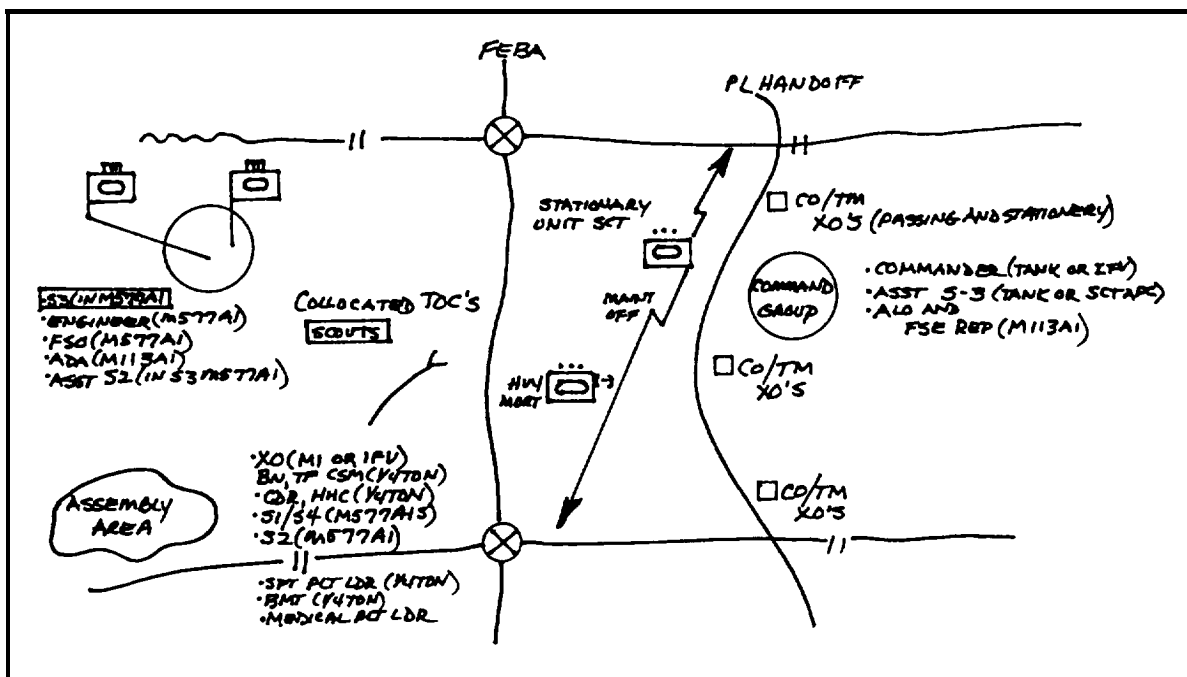 FEBA
PL HANDOFF
STATIONARY
UNIT SCT
CO/TM
XO'S (PASSING AND STATIONERY)
COMMAND
GROUP
•COMMANDER (TANK OR IFV)
•ASST S-3 (TANK OR SCT APC)
•ALO AND
FSE REP (M113A1)
S3 (IN M577A1)
•ENGINEER (M577A1)
•FSO (M577A1)
•ADA (M113A1)
•ASST S2 (IN S3 M577A1)
COLLOCATED TOC'S
SCOUTS
MAINT
OFF
HVY
MORT
CO/TM
XO'S
•XO (M1 OR IFV)
BN, TF CSM (1/4 TON)
•CDR, HHC (1/4 TON)
•S1/S4 (M577A1S)
•S2 (M577A1)
ASSEMBLY
AREA
CO/TM
XO'S
•SPT PLT LDR (1/4 TON)
•BMT (1/4 TON)
•MEDICAL PLT LDR